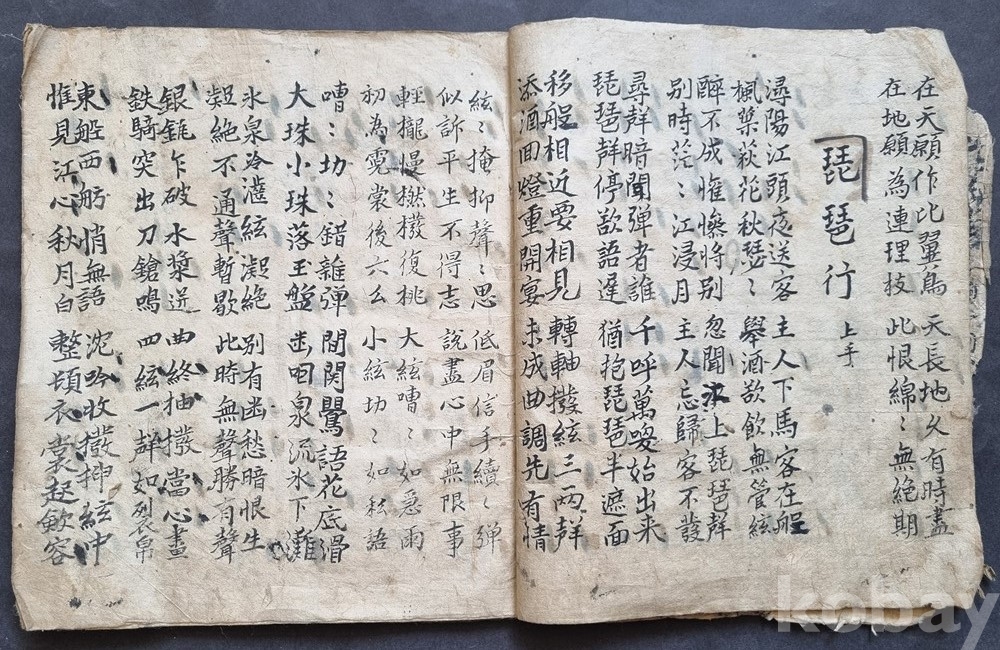 在天願作比翼鳥 天長地久有時盡
在地願為連理枝 此恨綿〻無絶期
琵琶行 上手
潯陽江頭夜送客 主人下馬客在船
楓葉荻花秋瑟〻 舉酒欲飲無管絃
醉不成惟慘將别 忽聞水上琵琶聲
别時茫〻江浸月 主人忘歸客不發
尋聲暗聞弹者誰 千呼萬喚始出来
琵琶聲停欲語遲 猶抱琵琶半遮面
移船相近要相見 轉軸撥絃三兩聲
添酒回燈重開宴 未成曲調先有情
絃〻掩抑聲〻思 低眉信手續〻弹
似訴平生不得志 説盡心中無限事
輕攏慢撚撥復桃 大絃嘈〻如急雨
初為霓裳後六么 小絃切〻如私語
嘈〻切〻錯雜弹 間関鶯語花底滑
大珠小珠落玉盤 幽咽泉流氷下灘
氷泉冷澁絃凝絶 别有幽愁暗恨生
凝絶不通聲暫歇 此時無聲勝有聲
銀缾乍破水漿迸 曲終抽撥當心畫
鉄騎突出刀鎗鳴 四絃一聲如裂帛
東船西舫悄無語 沈吟收撥挿絃中
惟見江心秋月白 整頓衣裳起斂容
kobay